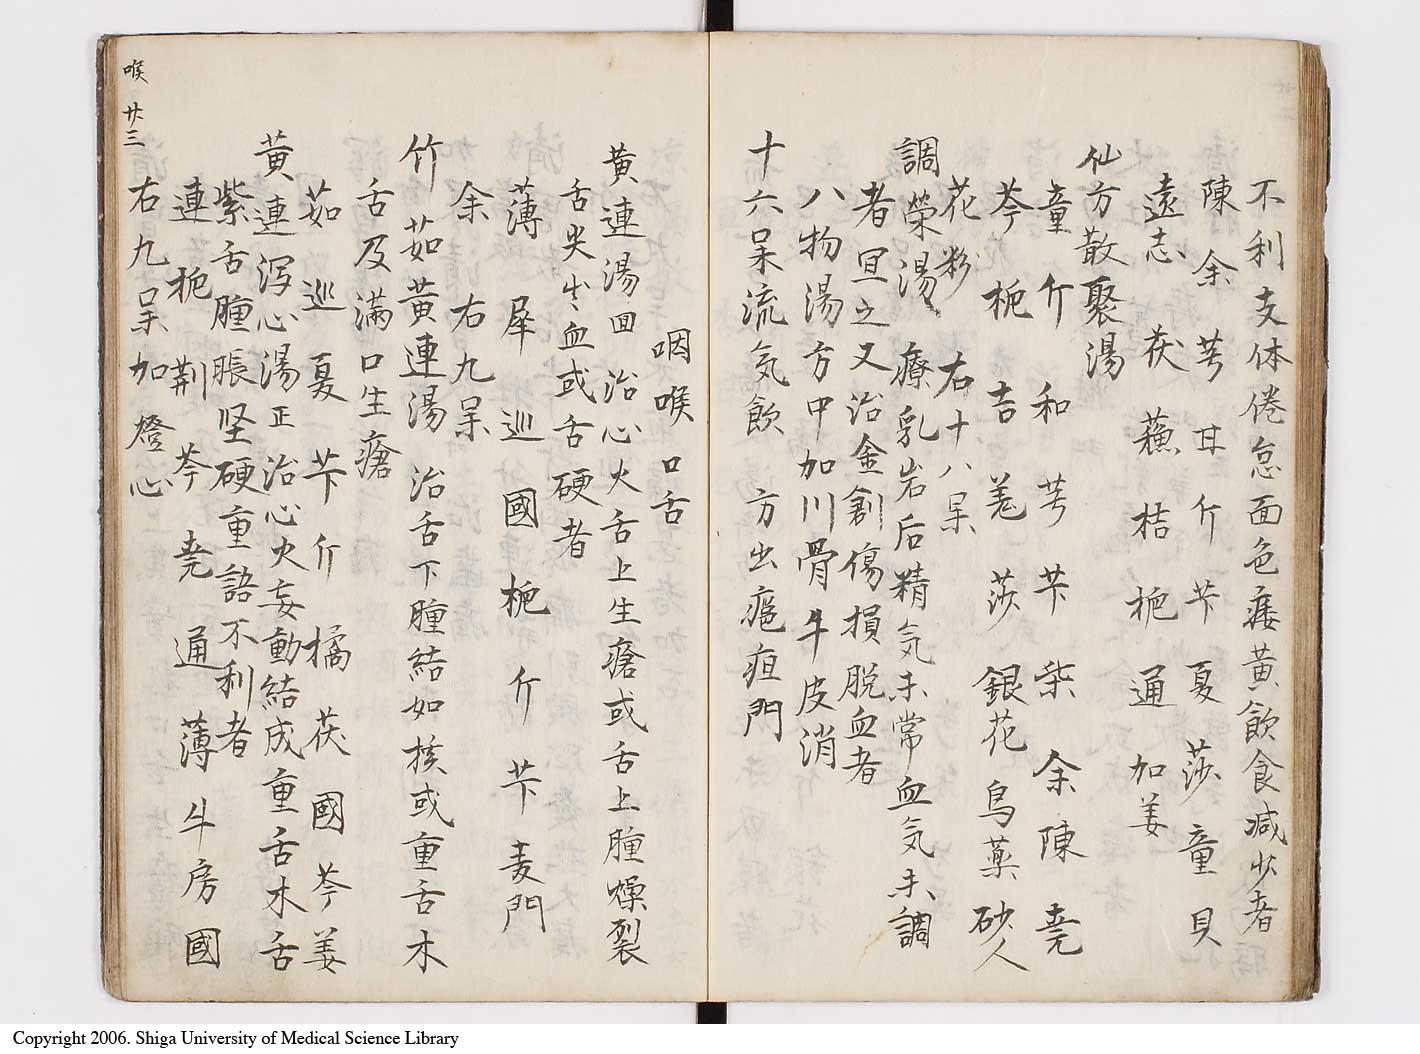 不利支体倦怠面色痿黄飲食減少者
陳余芎甘斤芐夏莎童貝
遠志 茯蘓桔梔通加姜
仙方散聚湯
童斤和芎芐柴余陳荛
芩梔吉羌莎銀花烏薬砂人
花粉 右十八呆
調榮湯 療乳岩后精気未常血気未調
者冝之又治金創傷損脱血者
八物湯方中加川骨牛皮消
十六呆流気飲 方出瘡疽門
咽喉口舌
黄連湯回 治心火舌上生瘡或舌上腫燥裂
舌尖出血或舌硬者
薄犀巡國梔斤芐麦門
余 右九呆
竹茹黄連湯 治舌下腫結如核或重舌木
舌及満口生瘡
茹巡夏芐斤橘茯國芩姜
黄連瀉心湯正 治心火妄動結成重舌木舌
紫舌腫脹坚硬重語不利者
連梔荆芩荛通薄牛房國
右九呆加燈心
喉 廿三
Copyright 2006. Shiga University of Medical Science Library